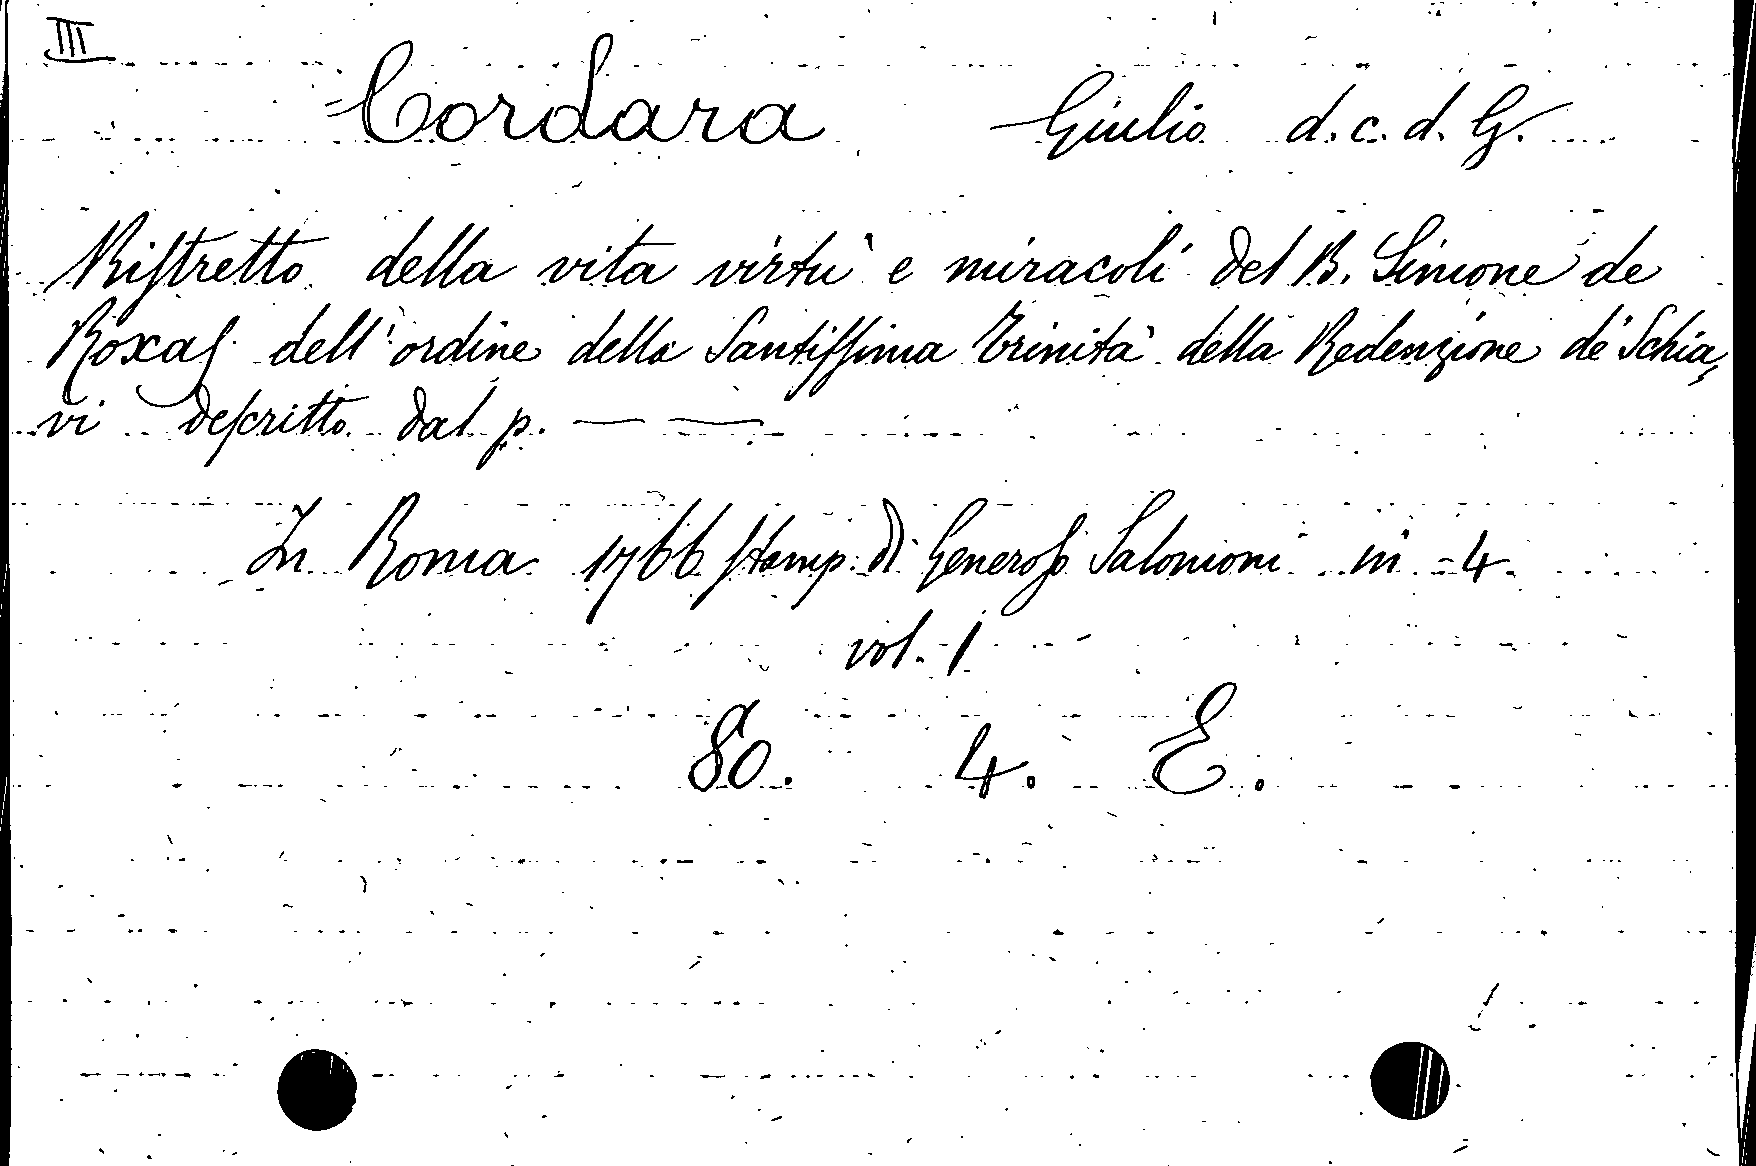 III
Cordara Giulio d. c. d. G.
Riſtretto della vita virtù e miracoli del B. Simone de
Roxaſ dell'ordine della Santiſſima Trinità della Redenzione de' Schia,
vi deſcritto dal p. — —
In Roma 1766 ſtamp. di Generoſo Salomoni in 4.
vol. 1
80. 4. E.